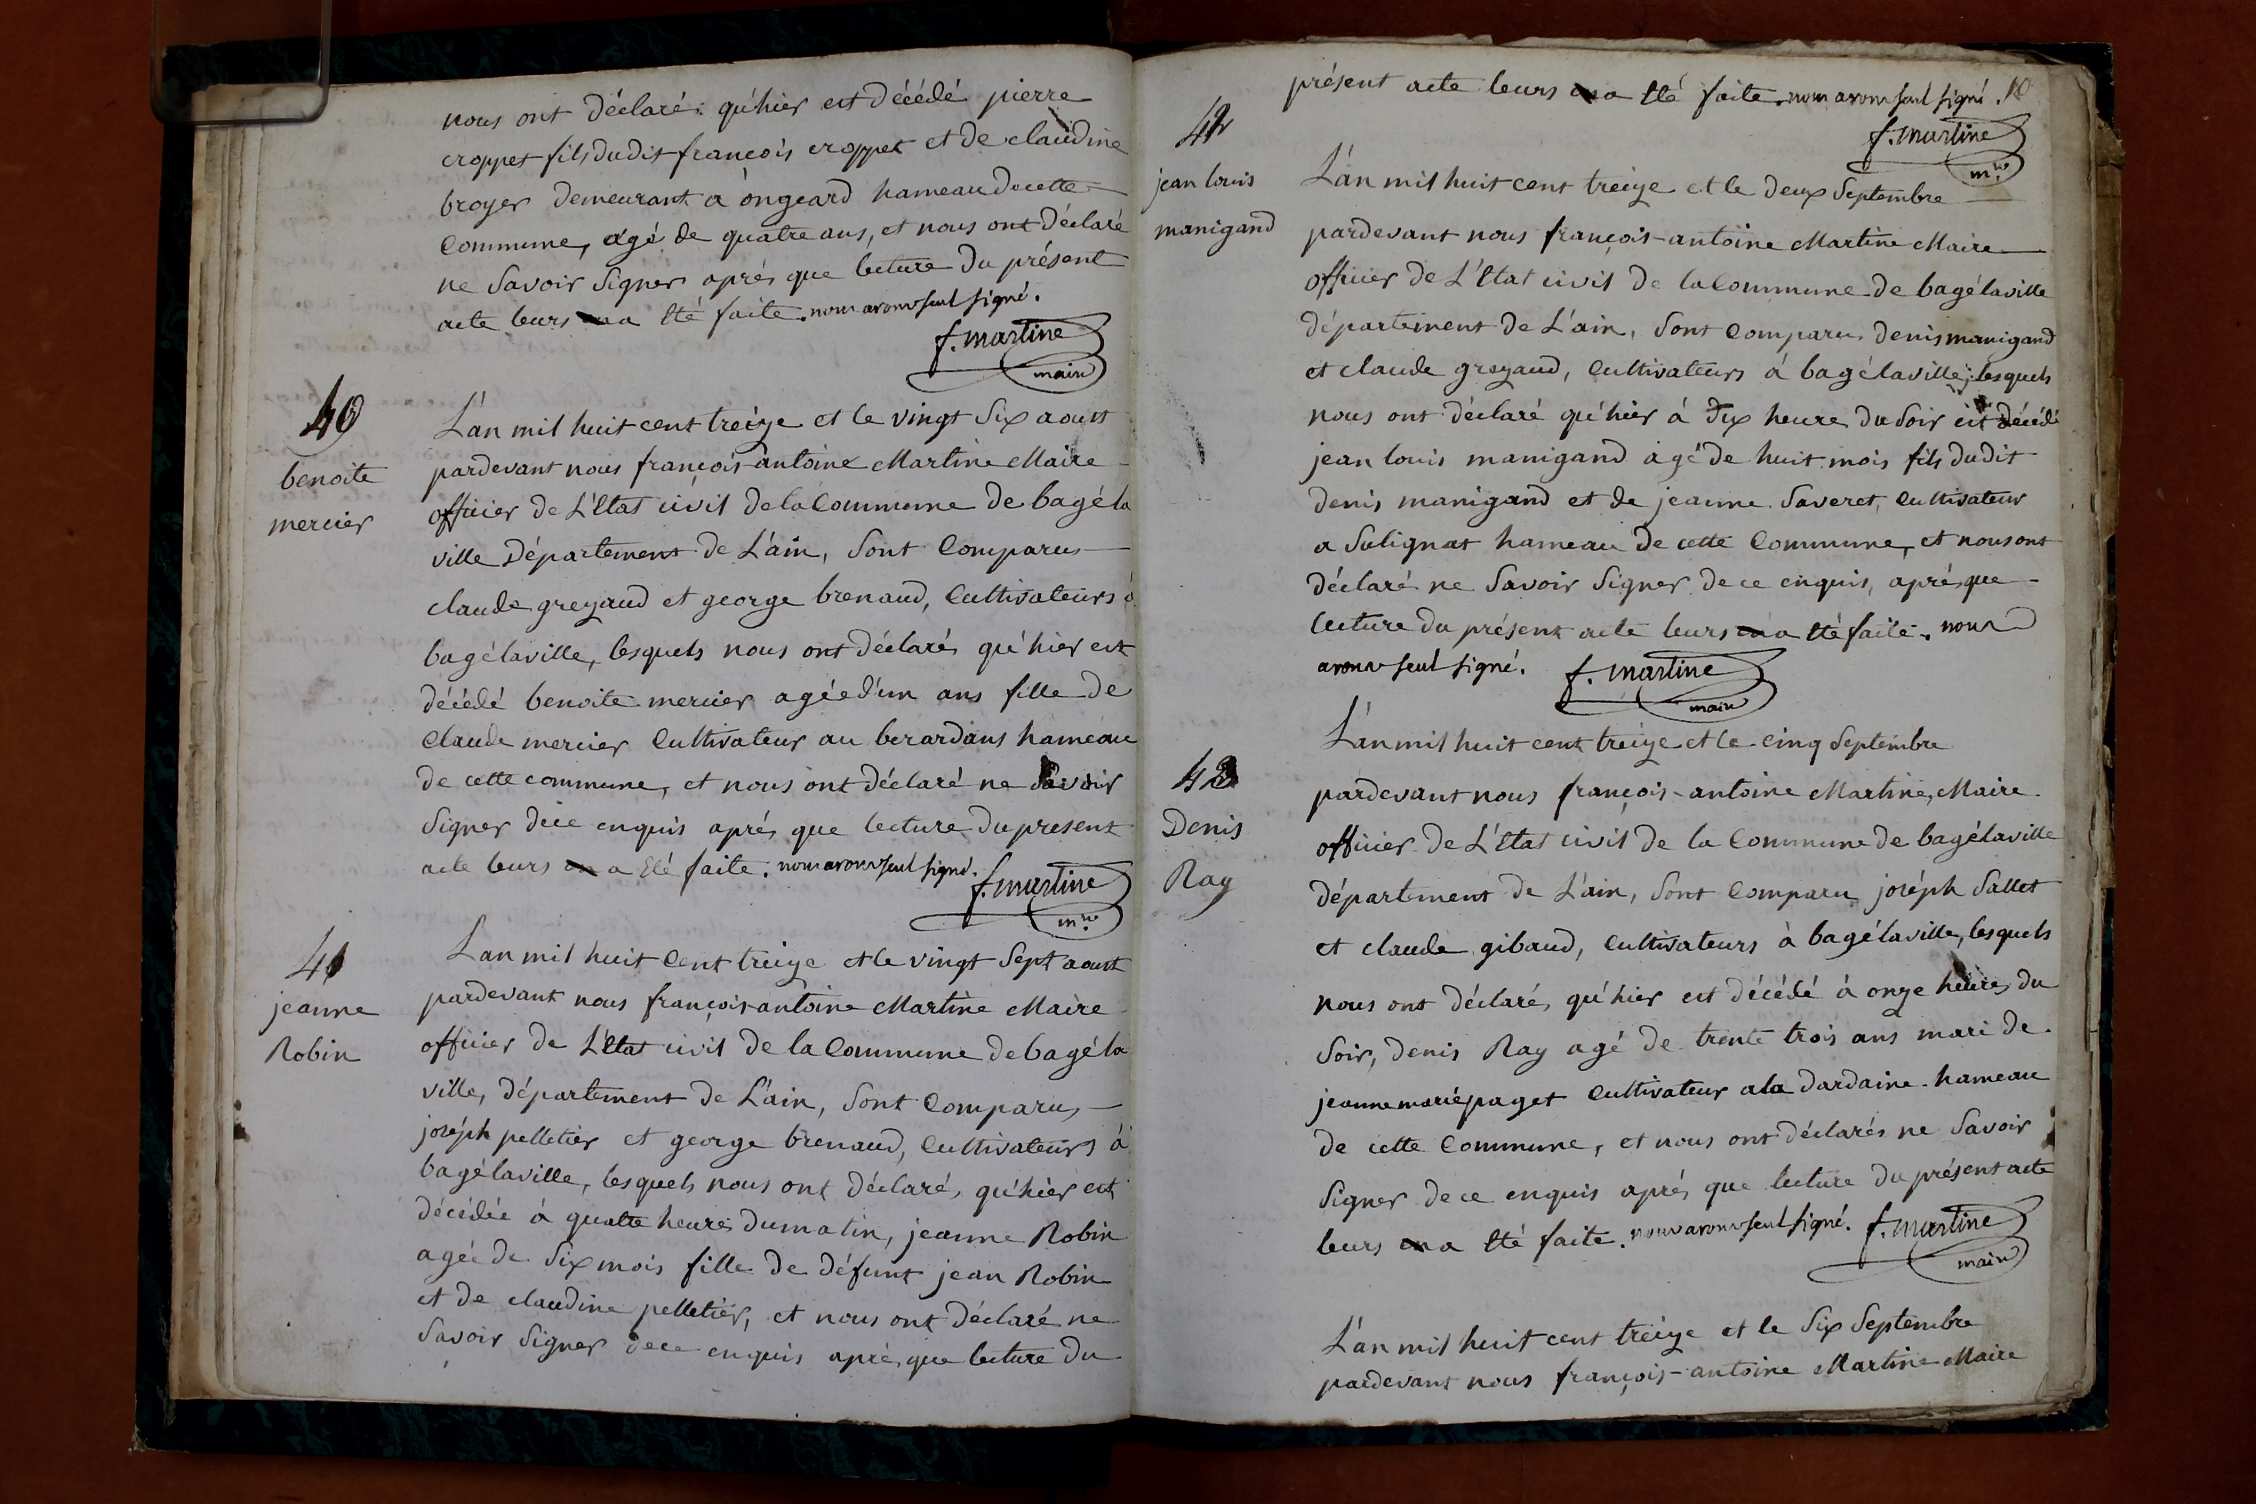 nous ont déclaré qu'hier est décédé pierre
croppet fils dudit françois croppet et de claudine
broyer demeurant a ongeard hameau de cette
Commune, agé de quatre ans, et nous ont déclaré
ne Savoir Signer après que lecture du présent
acte leurs a été faite. nous avons seul signé.
f. martine
maire
40
benoite
mercier
L'an mil huit cent treize et le vingt Six aoust
pardevant nous françois-antoine Martine Maire
officier de L'Etat civil de la Commune de bagé la
ville Département de L'ain, Sont Comparus
claude grezaud et george brenaud, Cultivateurs à
bagélaville, lesquels nous ont déclarés qu'hier est
décédé benoite mercier agée d'un ans fille de
Claude mercier Cultivateur au berardans hameau
de cette commune, et nous ont déclaré ne Savoir
Signer dece enquis après que lecture du present
acte leurs a été faite. nous avons seul signé.
f. martine
mre.
41
jeanne
Robin
L'an mil huit Cent treize et le vingt Sept aoust
pardevant nous françois-antoine Martine Maire
officier de L'Etat civil de la Commune de bagé la
ville, département de L'ain, Sont Comparus
joséph pelletier et george brenaud, Cultivateurs à
bagélaville, lesquels nous ont déclarés qu'hier est
décédée à quatre heures du matin, jeanne Robin
agée de Six mois fille de défunt jean Robin
et de claudine pelletier, et nous ont déclaré ne
Savoir Signer dece enquis après que lecture du
présent acte leurs a été faite. nous avons seul signé.
f. martine
mre.
42
jean louis
manigand
L'an mil huit cent treize et le deux Septembre
pardevant nous françois-antoine Martine Maire
officier de L'Etat civil de la Commune de bagélaville
département de L'ain, Sont Comparus denis manigand
et claude grezaud, Cultivateurs à bagélaville, lesquels
nous ont déclaré qu'hier à dix heure du Soir est décédé
jean louis manigand agé de huit mois fils dudit
denis manigand et de jeanne Saveret, Cultivateur
a Sulignat hameau de cette Commune, et nous ont
déclaré ne Savoir Signer de ce enquis, après que
lecture du présent acte leurs a été faite. nous
avons seul signé. f. martine
maire
43
Denis
Ray
L'an mil huit cent treize et le cinq Septembre
pardevant nous françois-antoine Martine, Maire
officier de L'Etat civil de la Commune de bagélaville
département de L'ain, Sont Comparu joséph Sallet
et claude gibaud, Cultivateurs à bagélaville, lesquels
nous ont déclarés qu'hier est décédé à onze heures du
Soir, denis Ray agé de trente trois ans mari de
jeanne marie paget Cultivateur a la dardaine hameau
de cette Commune, et nous ont déclarés ne Savoir
Signer de ce enquis après que lecture du présent acte
leurs a été faite. nous avons seul signé. f. martine
maire
L'an mil huit cent treize et le Six Septembre
pardevant nous françois-antoine Martine Maire